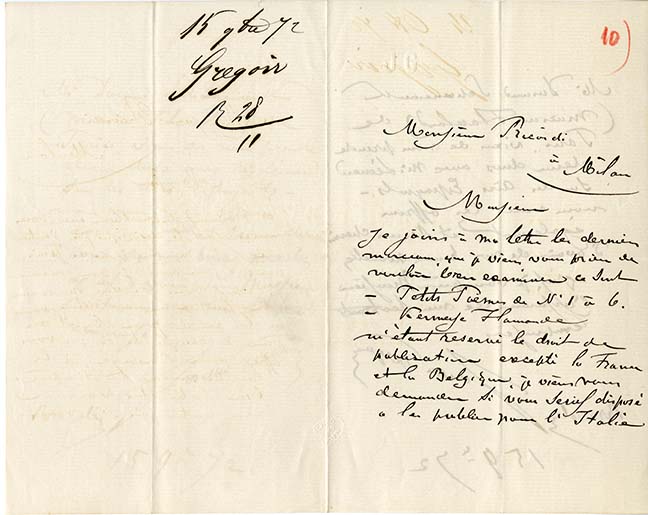 15 9bre 72
Gregoir
R 28
11
10)
Monsieur Ricordi
à Milan
Monsieur
Je joins à ma lettre les derniers
morceaux que je viens vous prier de
vouloir bien examiner ce sont
– Petits Poèmes de N° 1 à 6.
– Kermesse Flamande
m'étant reservé le droit de
publication excepté la France
et la Belgique, je viens vous
demander si vous seriez disposé
a les publier pour l'Italie